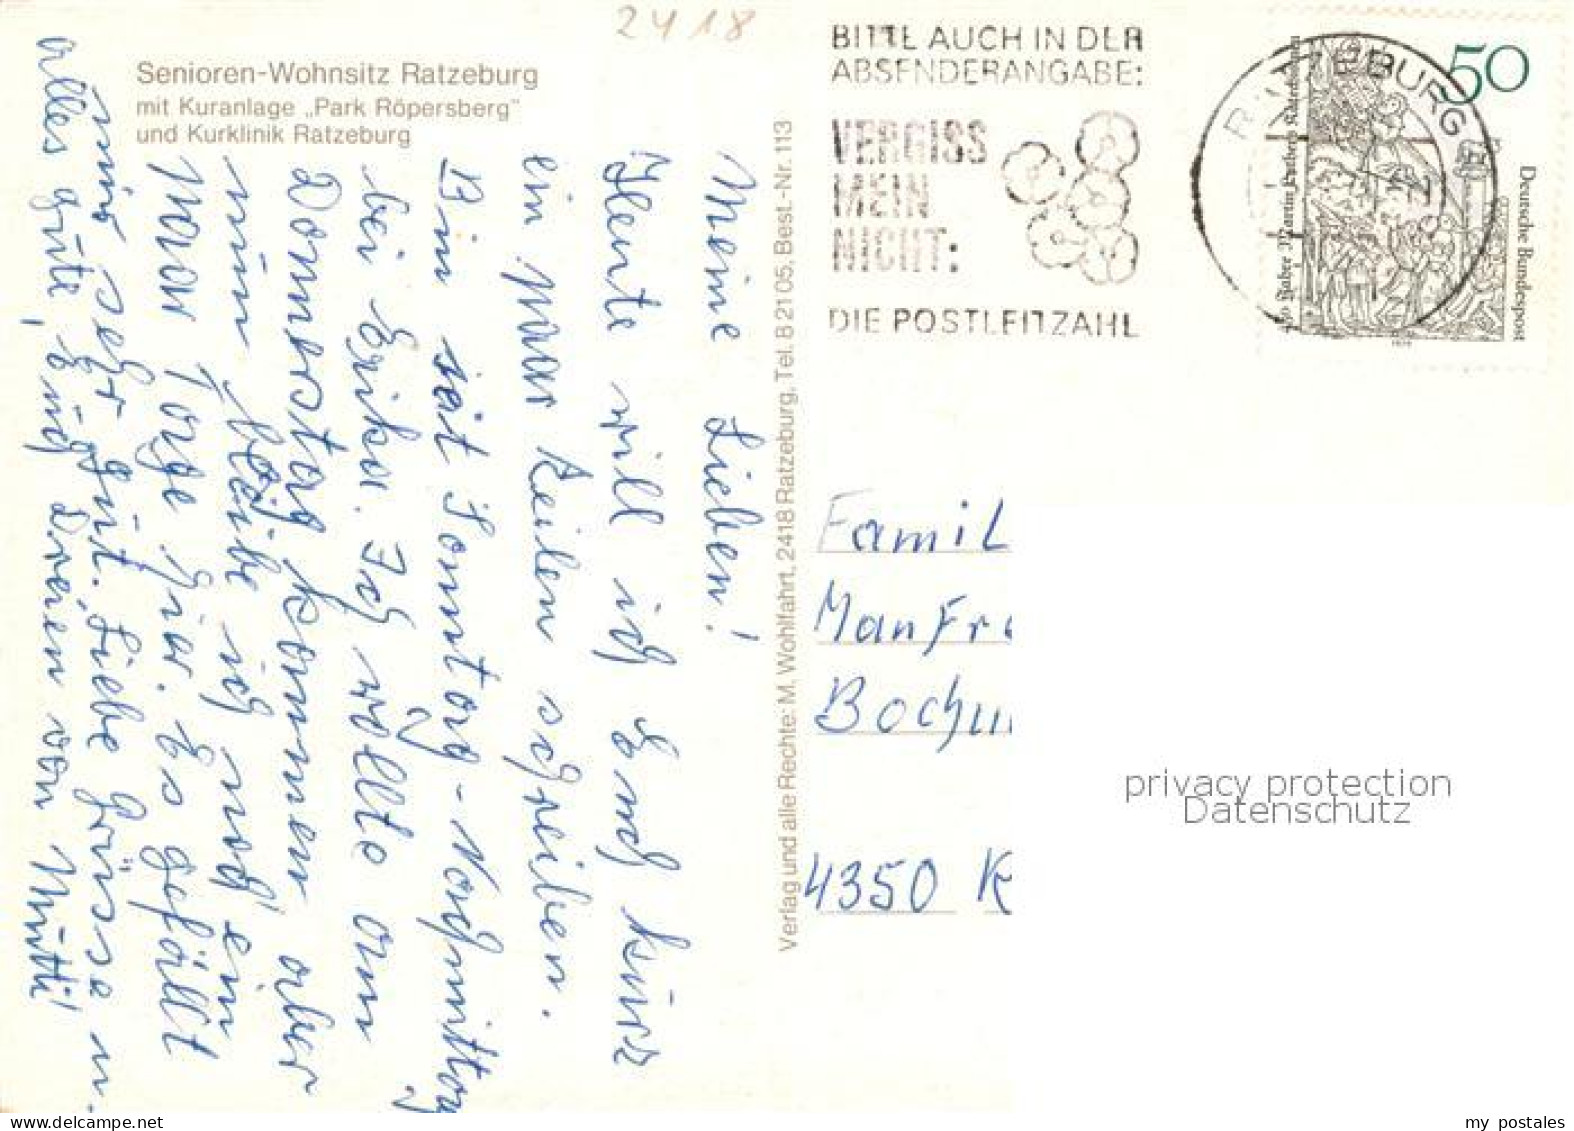 2418
Senioren-Wohnsitz Ratzeburg
mit Kuranlage „Park Röpersberg"
und Kurklinik Ratzeburg
Meine Lieben!
Heute will ich Euch kurz
ein paar Zeilen schreiben.
Bin seit Sonntag-Nachmittag
bei Erika. Ich wollte am
Donnerstag kommen aber
nun bleibe ich noch ein
paar Tage hier. Es gefällt
mir sehr gut. Liebe Grüsse u.
alles gute, Euch Dreien von Mutti!
Verlag und alle Rechte: M. Wohlfahrt, 2418 Ratzeburg, Tel. 8 21 05, Best.-Nr. 113
BITTE AUCH IN DER
ABSENDERANGABE:
VERGISS
MEIN
NICHT:
DIE POSTLEITZAHL
RATZEBURG
50
Deutsche Bundespost
450 Jahre Martin Luthers Katechismen
1979
Famil
Manfre
Bochum
4350 K
privacy protection
Datenschutz
my postales